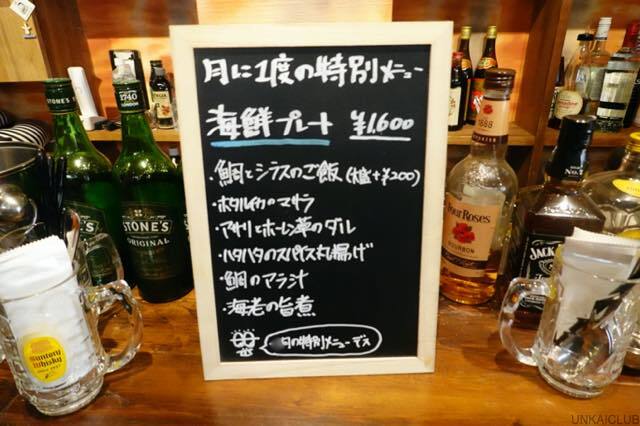 月に1度の特別メニュー
海鮮プレート ¥1,600
・鯛とシラスのご飯(大盛+¥200)
・ホタルイカのマサラ
・アサリとホーレン草のダル
・ハタハタのスパイス丸揚げ
・鯛のアラ汁
・海老の旨煮
月の特別メニューデス
STONE'S
1740
STONE'S
ORIGINAL
1888
Four Roses
BOURBON
JACK
Suntory
Whisky
UNKAICLUB